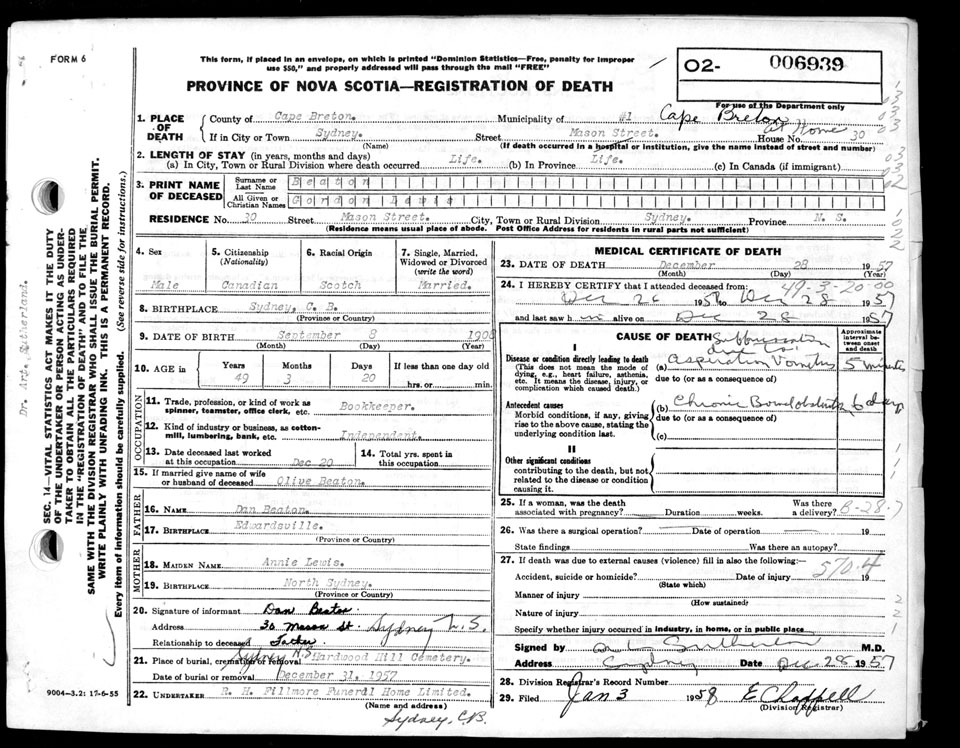 FORM 6
This form, if placed in an envelope, on which is printed "Dominion Statistics—Free, penalty for improper
use $50," and properly addressed will pass through the mail "FREE"
PROVINCE OF NOVA SCOTIA—REGISTRATION OF DEATH
02- 006939
For use of the Department only
1. PLACE OF DEATH
County of Cape Breton. Municipality of #1 Cape Breton
at Home
If in City or Town Sydney. Street Mason Street. House No. 30
(Name) (If death occurred in a hospital or institution, give the name instead of street and number)
2. LENGTH OF STAY (in years, months and days)
(a) In City, Town or Rural Division where death occurred Life. (b) In Province Life. (c) In Canada (if immigrant)
3. PRINT NAME OF DECEASED
Surname or Last Name Beaton
All Given or Christian Names Gordon Lewis
RESIDENCE No. 30 Street Mason Street. City, Town or Rural Division Sydney. Province N. S.
(Residence means usual place of abode. Post Office Address for residents in rural parts not sufficient)
4. Sex
Male
5. Citizenship (Nationality)
Canadian
6. Racial Origin
Scotch
7. Single, Married, Widowed or Divorced (write the word)
Married.
8. BIRTHPLACE Sydney, C. B.
(Province or Country)
9. DATE OF BIRTH September 8 1908
(Month) (Day) (Year)
10. AGE in Years Months Days If less than one day old
49 3 20 hrs. or min.
OCCUPATION
11. Trade, profession, or kind of work as
spinner, teamster, office clerk, etc. Bookkeeper.
12. Kind of industry or business, as cotton-
mill, lumbering, bank, etc. Independent.
13. Date deceased last worked
at this occupation Dec 20
14. Total yrs. spent in
this occupation
15. If married give name of wife
or husband of deceased Olive Beaton.
FATHER
16. Name Dan Beaton.
17. Birthplace Edwardsville.
(Province or Country)
MOTHER
18. Maiden Name Annie Lewis.
19. Birthplace North Sydney.
(Province or Country)
20. Signature of informant Dan Beaton
Address 30 Mason St. Sydney N.S.
Relationship to deceased Father
Sydney N.S
21. Place of burial, cremation or removal Hardwood Hill Cemetery.
Date of burial or removal December 31, 1957
22. UNDERTAKER R. H. Fillmore Funeral Home Limited.
(Name and address)
Sydney, C.B.
MEDICAL CERTIFICATE OF DEATH
23. DATE OF DEATH December 28 1957
(Month) (Day) (Year)
49-3-20-00
24. I HEREBY CERTIFY that I attended deceased from:
Dec 26 1957 to Dec 28 1957
and last saw him alive on Dec 28 1957
CAUSE OF DEATH
Approximate interval between onset and death
I
Disease or condition directly leading to death
(This does not mean the mode of
dying, e.g., heart failure, asthenia,
etc. It means the disease, injury, or
complication which caused death.)
(a) aspiration Vomitus 5 minutes
due to (or as a consequence of)
Antecedent causes
Morbid conditions, if any, giving
rise to the above cause, stating the
underlying condition last.
(b) Chronic Bowel obstruction 6 days
due to (or as a consequence of)
(c)
II
Other significant conditions
contributing to the death, but not
related to the disease or condition
causing it.
25. If a woman, was the death
associated with pregnancy? Duration weeks. Was there
a delivery? B-28-7
26. Was there a surgical operation? Date of operation 19
State findings Was there an autopsy?
27. If death was due to external causes (violence) fill in also the following:—
570.4
Accident, suicide or homicide? Date of injury 19
(State which)
Manner of injury
(How sustained)
Nature of injury
Specify whether injury occurred in industry, in home, or in public place
Signed by Sutherland M.D.
Address Sydney Date Dec 28 1957
28. Division Registrar's Record Number
29. Filed Jan 3 1958 E Chappell
(Division Registrar)
9004—3.2: 17-6-55
Dr. Arg. Sutherland.
SEC. 14—VITAL STATISTICS ACT MAKES IT THE DUTY
OF THE UNDERTAKER OR PERSON ACTING AS UNDER-
TAKER TO OBTAIN ALL THE PARTICULARS REQUIRED
IN THE "REGISTRATION OF DEATH" AND TO FILE THE
SAME WITH THE DIVISION REGISTRAR WHO SHALL ISSUE THE BURIAL PERMIT.
WRITE PLAINLY WITH UNFADING INK. THIS IS A PERMANENT RECORD.
Every item of information should be carefully supplied. (See reverse side for instructions.)